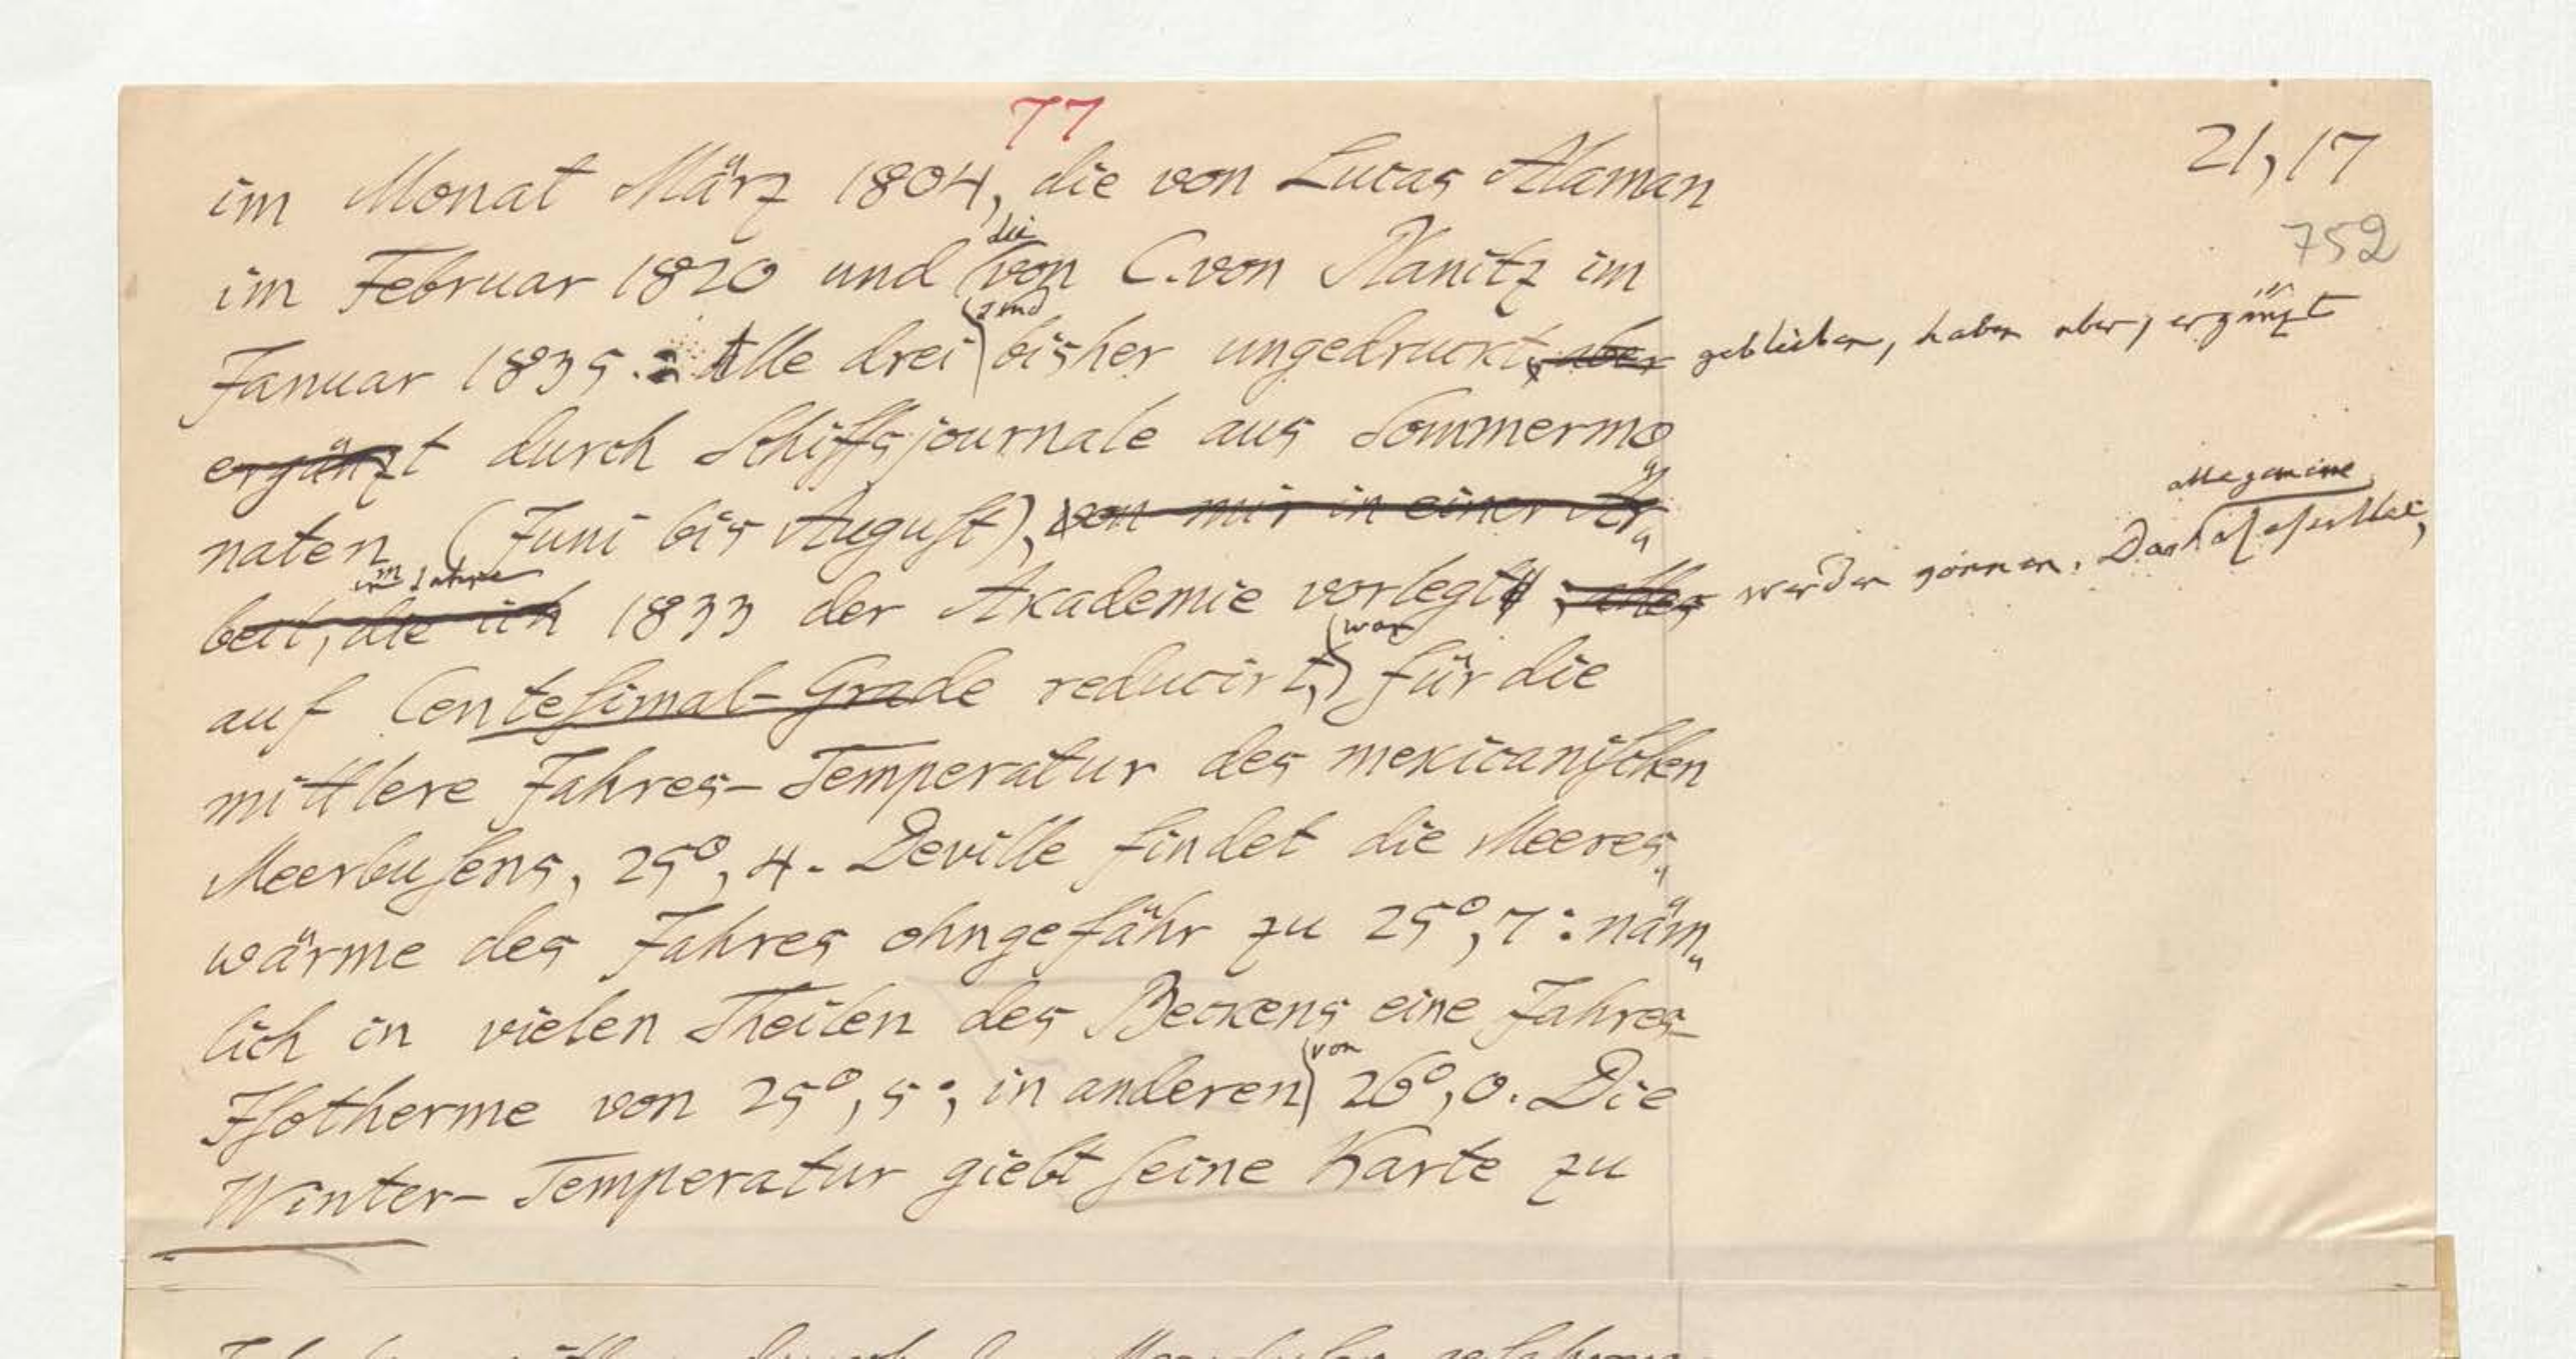 77
21,17
752
im Monat März 1804, die von Lucas Alaman
die
im Februar 1820 und von C. von Kanitz im
sind
Januar 1835. Alle drei bisher ungedruckt, aber geblieben, haben aber, ergänzt
ergänzt durch Schiffsjournale aus Sommermo„
allgemeine
naten (Juni bis August), von mir in einer Ar„
im Jahre
beit, die ich 1833 der Akademie vorlegt; alles werden können. Das
war
auf Centesimal-Grade reducirt, für die
mittlere Jahres-Temperatur des mexicanischen
Meerbusens, 25°,4. Deville findet die Meeres„
wärme des Jahres ohngefähr zu 25°,7: näm„
lich in vielen Theilen des Beckens eine Jahres-
von
Isotherme von 25°,5; in anderen 26°,0. Die
Winter-Temperatur giebt seine Karte zu